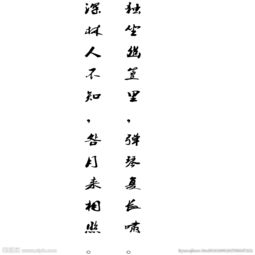 独坐幽篁里，弹琴复长啸。
深林人不知，咎月来相照。